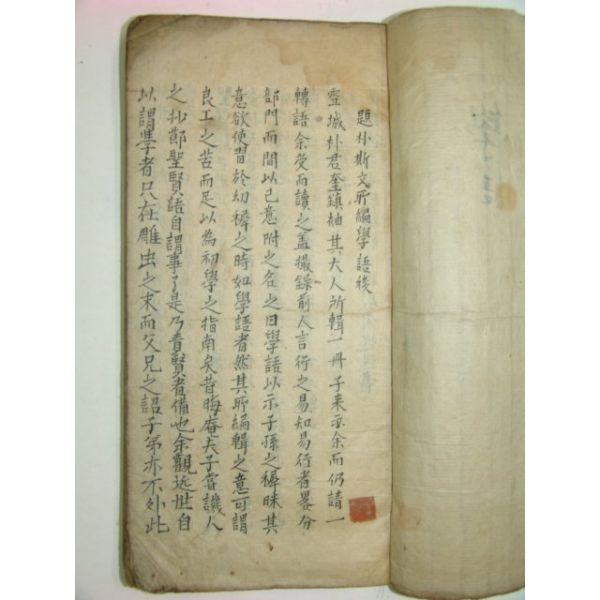 題朴斯文所編學語後
空城朴君奎鎮袖其大人所輯一冊子来示余而仍請一
轉語余受而讀之盖撮錄前人言行之易知易行者畧分
部門而間以己意附之名之曰學語以示子孫之穉昧其
意欲使習於幼穉之時如學語者然其所編輯之意可謂
良工之苦而足以為初學之指南矣昔晦庵夫子嘗譏人
之抄節聖賢語自謂事了是乃責賢者備也余觀近世自
以謂學者只在雕虫之末而父兄之詔子弟亦不外此